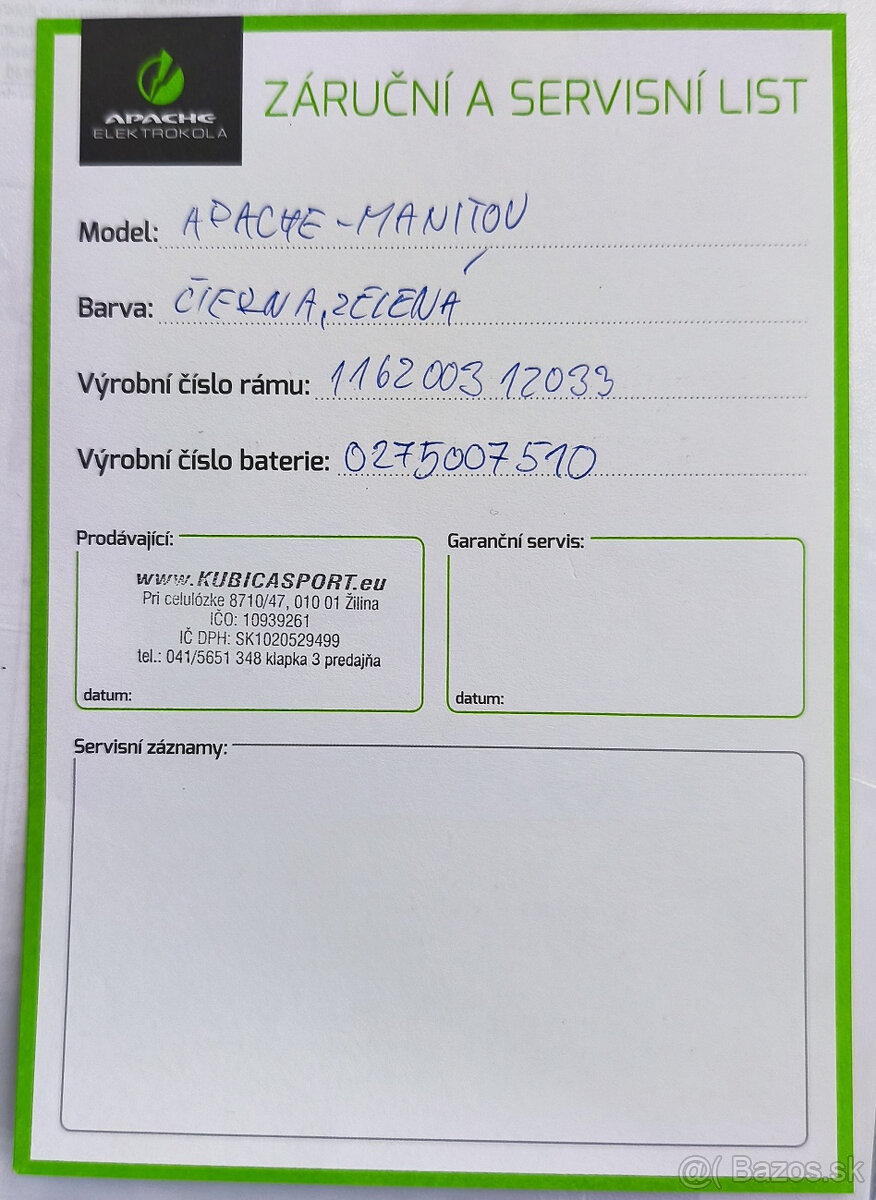 APACHE
ELEKTROKOLA
ZÁRUČNÍ A SERVISNÍ LIST
Model: APACHE-MANITOU
Barva: ČIERNA, ZELENÁ
Výrobní číslo rámu: 116200312033
Výrobní číslo baterie: 0275007510
Prodávající:
www.KUBICASPORT.eu
Pri celulózke 8710/47, 010 01 Žilina
IČO: 10939261
IČ DPH: SK1020529499
tel.: 041/5651 348 klapka 3 predajňa
datum:
Garanční servis:
datum:
Servisní záznamy:
@( Bazos.sk